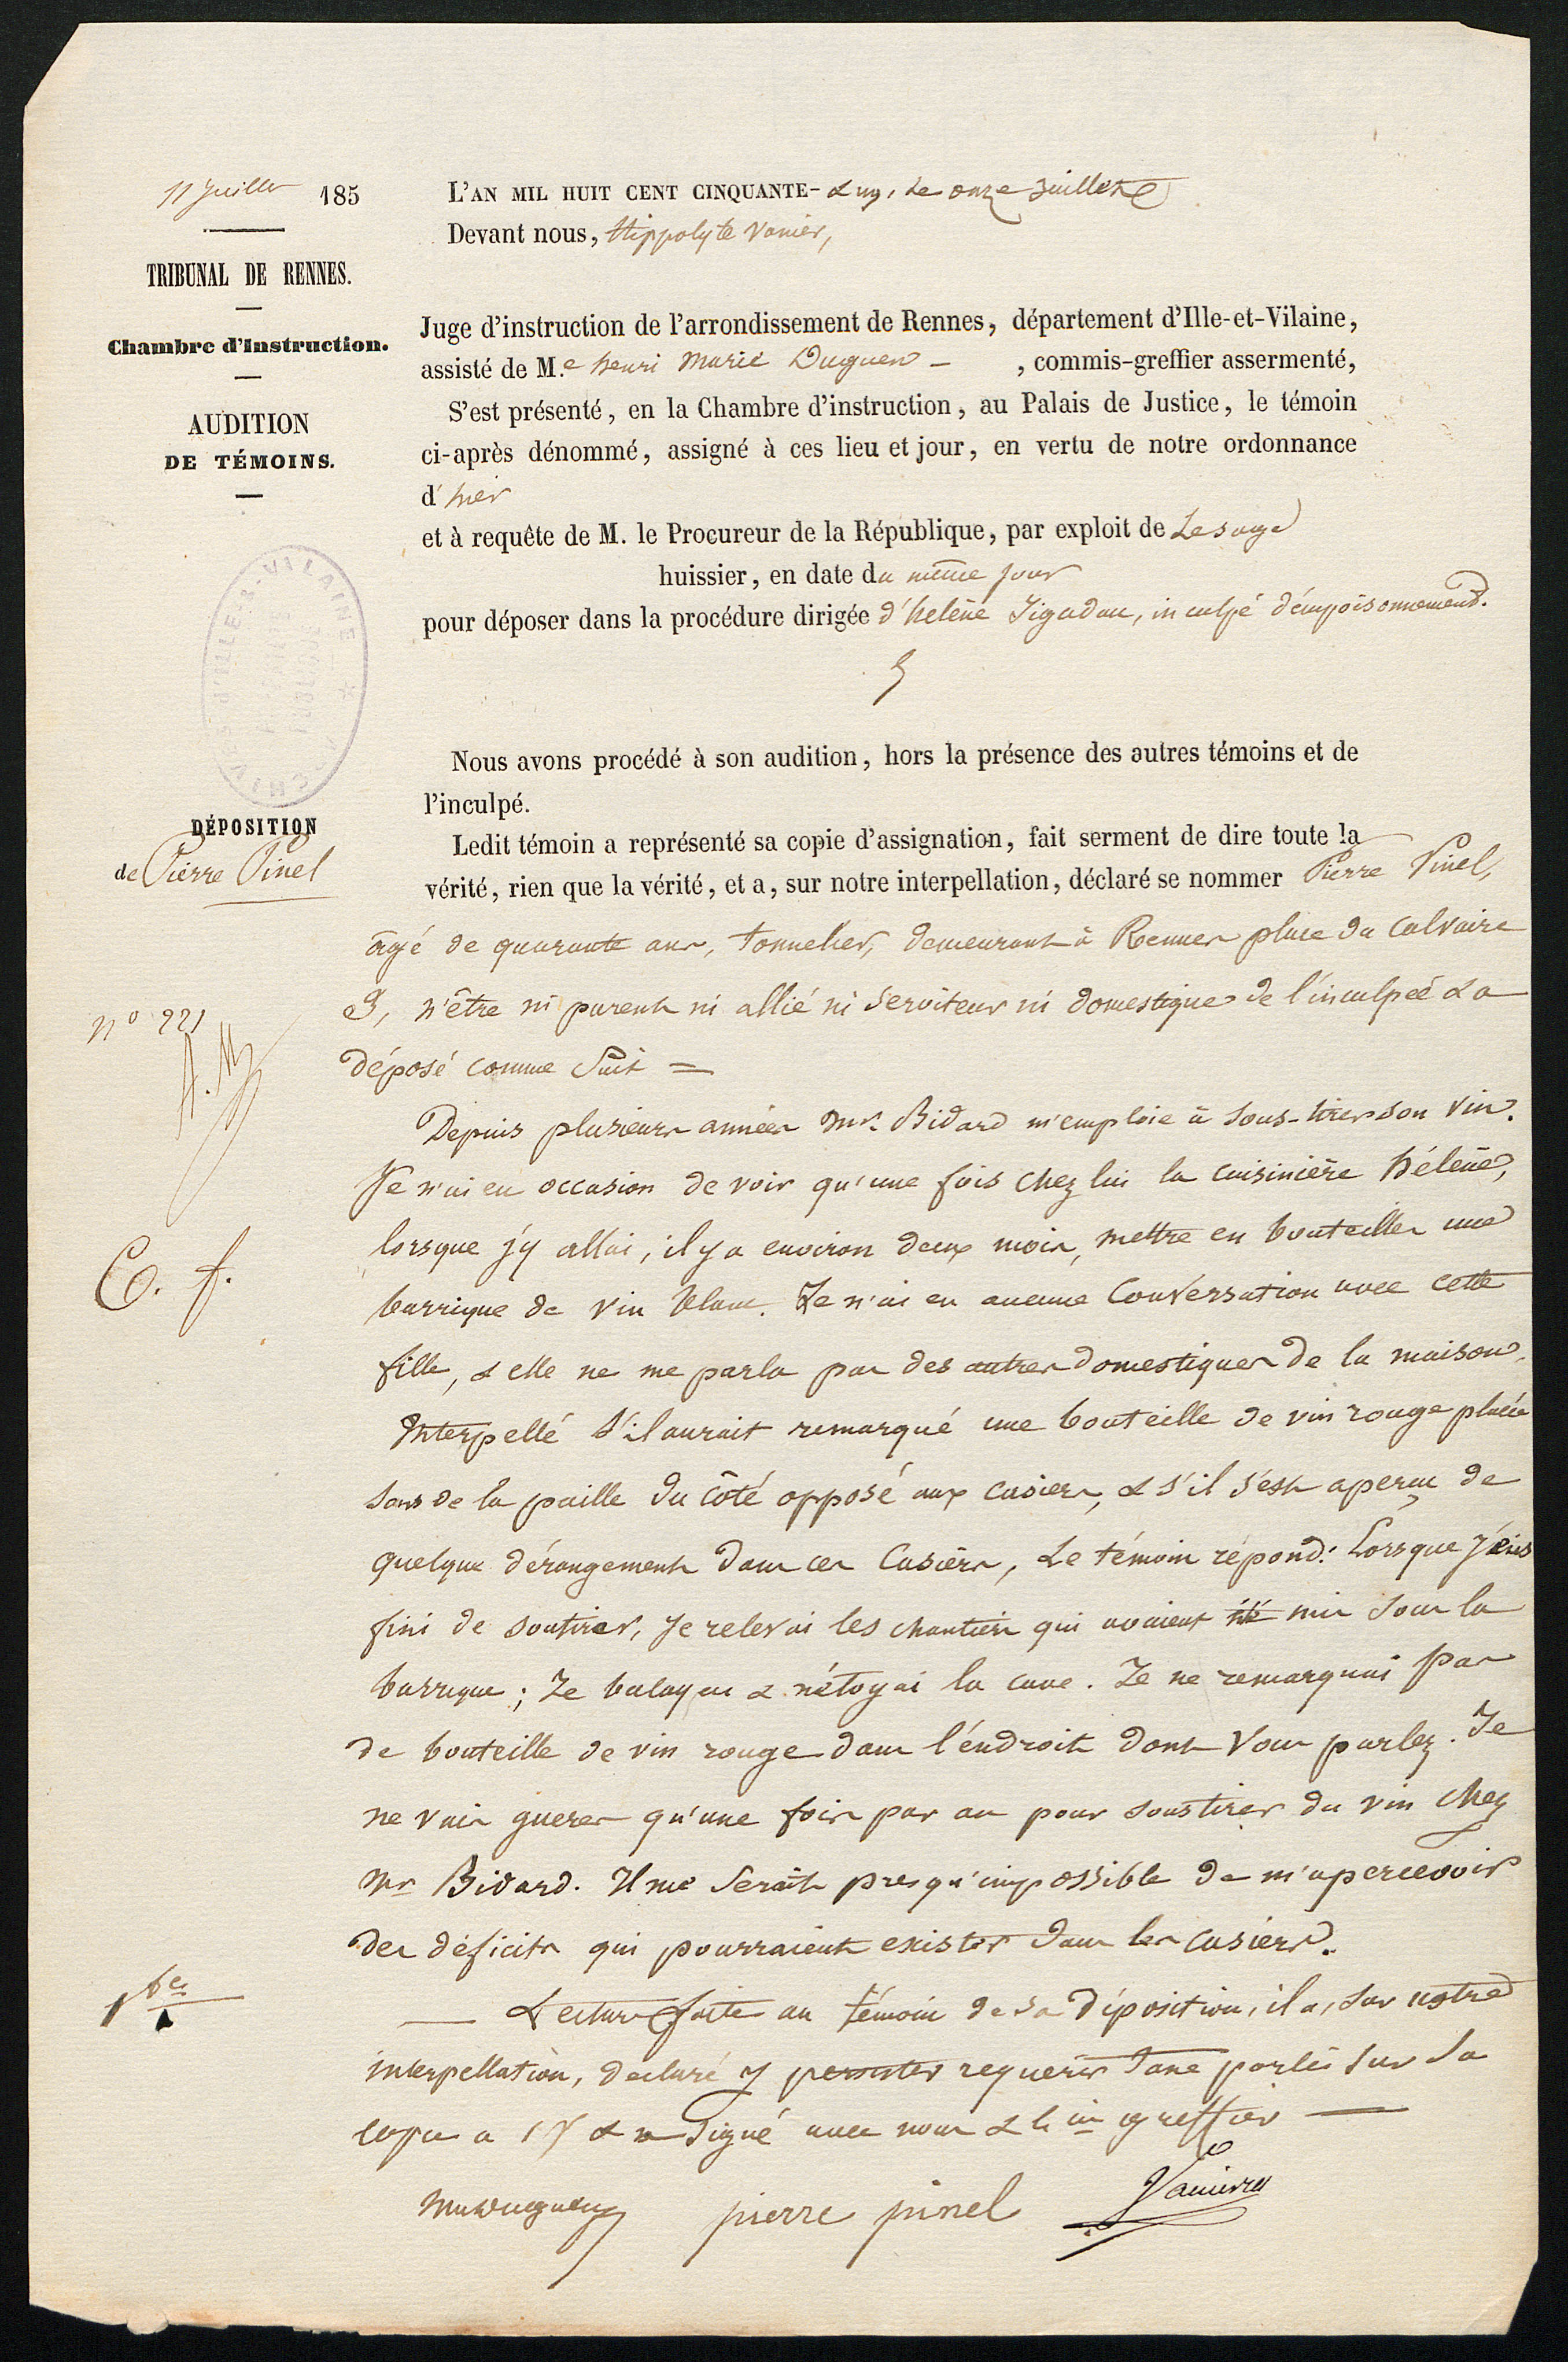 11 Juillet 185
TRIBUNAL DE RENNES.
Chambre d'Instruction.
AUDITION
DE TÉMOINS.
DÉPOSITION
de Pierre Pinel
n° 221
C. f.
L'AN MIL HUIT CENT CINQUANTE- & un, Le onze Juillet
Devant nous, Hippolyte Vanier,
Juge d'instruction de l'arrondissement de Rennes, département d'Ille-et-Vilaine,
assisté de M.e henri Marie Duguen - , commis-greffier assermenté,
S'est présenté, en la Chambre d'instruction, au Palais de Justice, le témoin
ci-après dénommé, assigné à ces lieu et jour, en vertu de notre ordonnance
d'hier
et à requête de M. le Procureur de la République, par exploit de Lesage
huissier, en date du même jour
pour déposer dans la procédure dirigée d'helene Jigadau, inculpé d'empoisonnement.
Nous avons procédé à son audition, hors la présence des autres témoins et de
l'inculpé.
Ledit témoin a représenté sa copie d'assignation, fait serment de dire toute la
vérité, rien que la vérité, et a, sur notre interpellation, déclaré se nommer Pierre Pinel,
âgé de quarante ans, tonnelier, demeurant à Rennes place du Calvaire
9, n'être ni parent ni allié ni serviteur ni domestique de l'inculpeé & a
déposé comme suit =
Depuis plusieurs années Mr. Bidard m'emploie à sous-tirer son vin.
Je n'ai eu occasion de voir qu'une fois chez lui la cuisinière hélène,
lorsque j'y allai, il y a environ deux mois, mettre en bouteilles une
barrique de vin blanc. Je n'ai eu aucune conversation avec cette
fille, & elle ne me parla pas des autres domestiques de la maison.
Interpellé s'il aurait remarqué une bouteille de vin rouge placée
sous de la paille du côté opposé aux casiers, & s'il s'est aperçu de
quelque dérangement dans ces casiers, Le témoin répond: Lorsque j'eus
fini de soutirer, je relevai les chantiers qui avaient été mis sous la
barrique; Je balayai & nétoyai la cave. Je ne remarquai pas
de bouteille de vin rouge dans l'éndroit dont vous parlez. Je
ne vais gueres qu'une fois par an pour soustirer du vin chez
Mr Bidard. Il me serait presqu'impossible de m'apercevoir
des déficits qui pourraient exister dans les casiers.
Lecture faite au témoin de sa déposition, il a, sur notre
interpellation, déclaré y persister requerir taxe portée sur sa
copie a & a signé avec nous & le cis greffier
Duguen pierre pinel Vanier